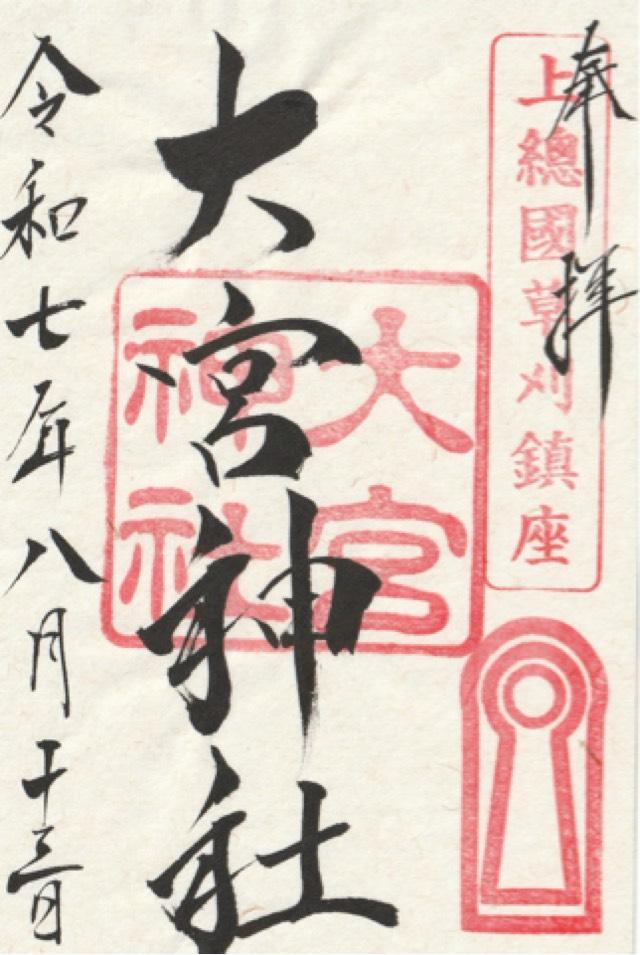 奉拝
上總國草刈鎮座
大宮神社
大宮神社
令和七年八月十三日